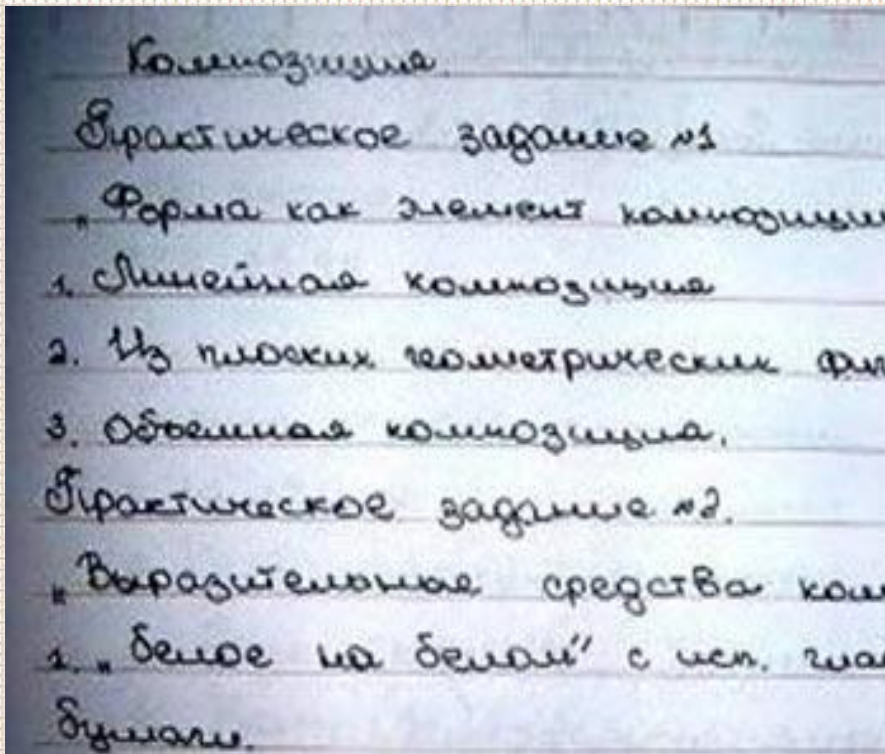 Композиция.
Практическое задание №1
„Форма как элемент композиции
1. Линейная композиция
2. Из плоских геометрических фиг
3. Объемная композиция.
Практическое задание №2.
„Выразительные средства ком
1. „белое на белом" с исп. глад
бумаги.